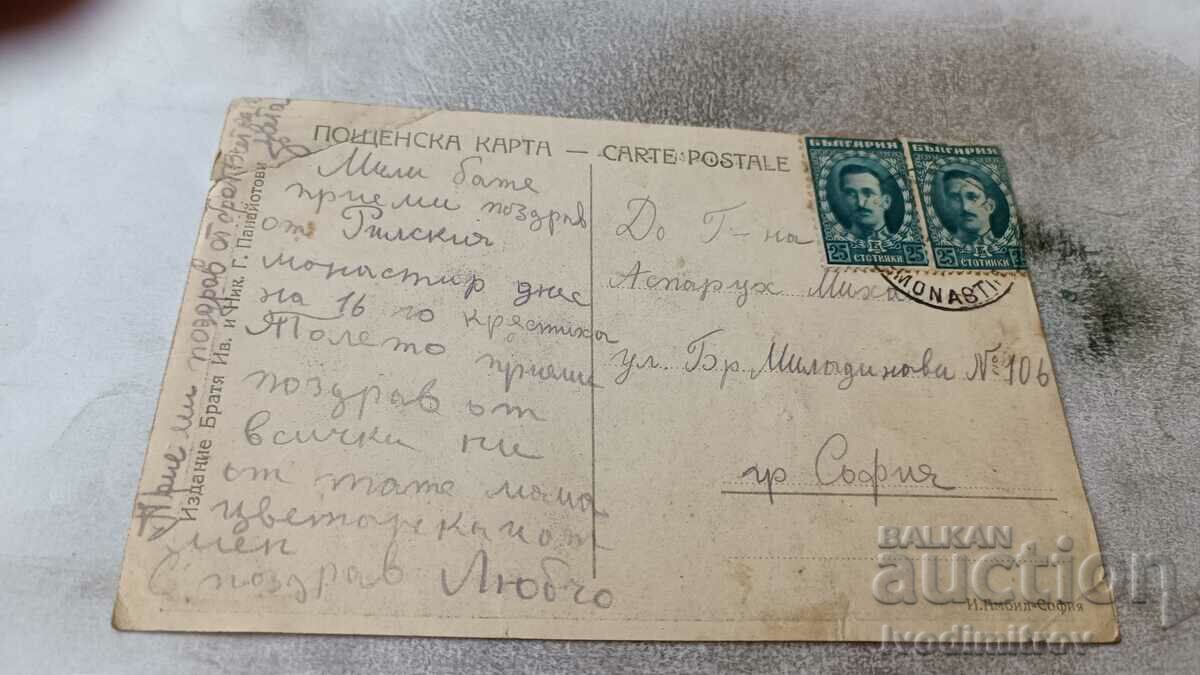 ПОЩЕНСКА КАРТА — CARTE POSTALE
Мили бате
приеми поздрав
от Рилския
монастир днес
на 16 го
Полето приеми
поздрав от
всички ни
от тате мама
цветарка и от
мен
С поздрав Любчо
поздрав от
Издание Братя Ив. и Ник. Г. Панайотови
До Г-на
Аспарух Миха
ул. Бр. Миладинови № 106
гр София
БЪЛГАРИЯ
25 СТОТИНКИ 25
БЪЛГАРИЯ
25 СТОТИНКИ
MONASTI
И. Амбил-София
BALKAN
auction
Ivodimitrov